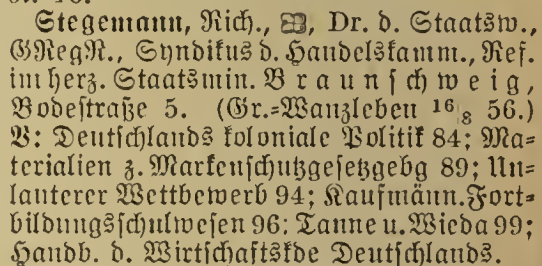 Stegemann, Rich., Dr. d. Staatsw.,
GRegR., Syndikus d. Handelskamm., Ref.
im herz. Staatsmin. Braunschweig,
Bodestraße 5. (Gr.=Wanzleben 16/8 56.)
V: Deutschlands koloniale Politik 84; Ma=
terialien z. Markenschutzgesetzgebg 89; Un=
lauterer Wettbewerb 94; Kaufmänn. Fort=
bildungsschulwesen 96; Tanne u. Wieda 99;
Handb. d. Wirtschaftskde Deutschlands.